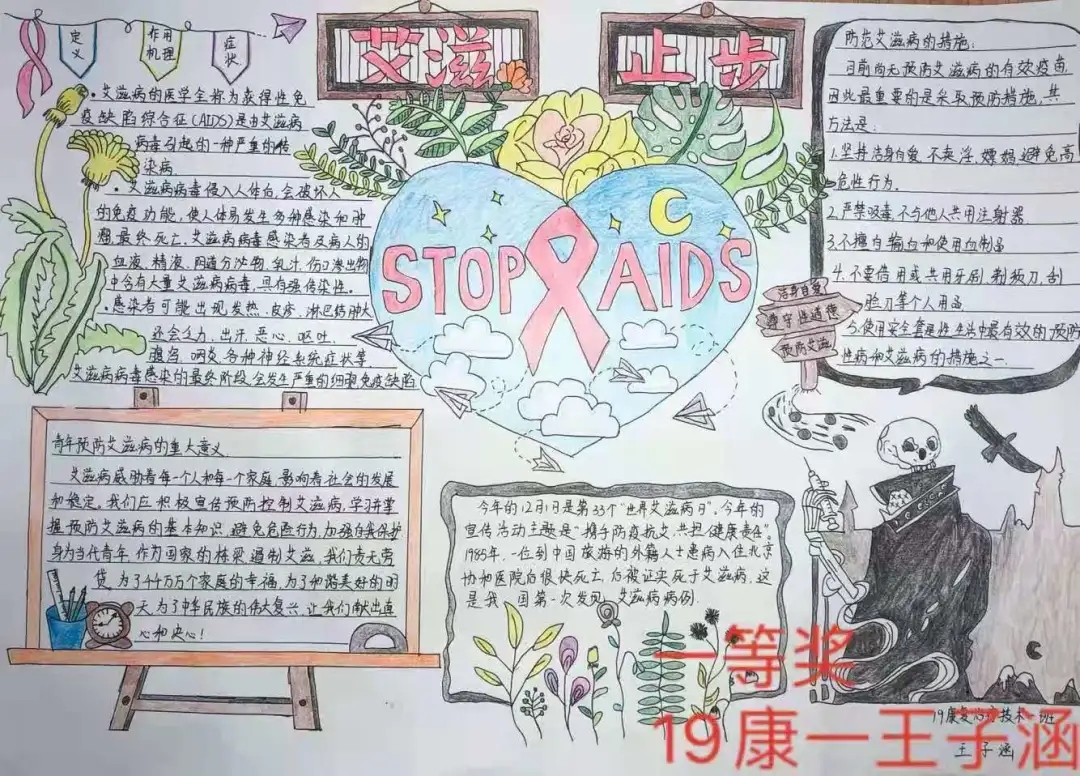 艾滋
止步
定义
作用
机理
症状
·艾滋病的医学全称为获得性免
疫缺陷综合征(AIDS)是由艾滋病
病毒引起的一种严重的传
染病
·艾滋病病毒侵入人体后,会破坏人
的免疫功能,使人体易发生多种感染和肿
瘤,最终死亡,艾滋病病毒感染者及病人的
血液、精液、阴道分泌物、乳汁、伤口渗出物
中含有大量艾滋病病毒,具有强传染性。
·感染者可能出现发热、皮疹、淋巴结肿大
还会乏力、出汗、恶心、呕吐、
腹泻、咽炎、各种神经系统症状等
艾滋病病毒感染的最终阶段,会发生严重的细胞免疫缺陷
STOP AIDS
防范艾滋病的措施:
目前尚无预防艾滋病的有效疫苗,
因此最重要的是采取预防措施,其
方法是:
1.坚持洁身自爱,不卖淫,嫖娼,避免高
危性行为。
2.严禁吸毒,不与他人共用注射器
3.不擅自输血和使用血制品
4.不要借用或共用牙刷、剃须刀、刮
脸刀等个人用品
5.使用安全套是性生活中最有效的预防
性病和艾滋病的措施之一.
洁身自爱
遵守性道德
预防艾滋
青年预防艾滋病的重大意义
艾滋病威胁着每一个人和每一个家庭,影响着社会的发展
和稳定。我们应积极宣传预防控制艾滋病,学习并掌
握预防艾滋病的基本知识,避免危险行为,加强自我保护
身为当代青年,作为国家的栋梁,遏制艾滋,我们责无旁
贷,为了44万万个家庭的幸福,为了和谐美好的明
天,为了中华民族的伟大复兴,让我们献出
心和决心!
今年的12月1日是第33个“世界艾滋病日”,今年的
宣传活动主题是“携手防疫抗艾,共担健康责任”。
1985年,一位到中国旅游的外籍人士患病入住北京
协和医院后很快死亡,后被证实死于艾滋病,这
是我国第一次发现艾滋病病例.
19康复治疗技术一班
王子涵
一等奖
19康一王子涵